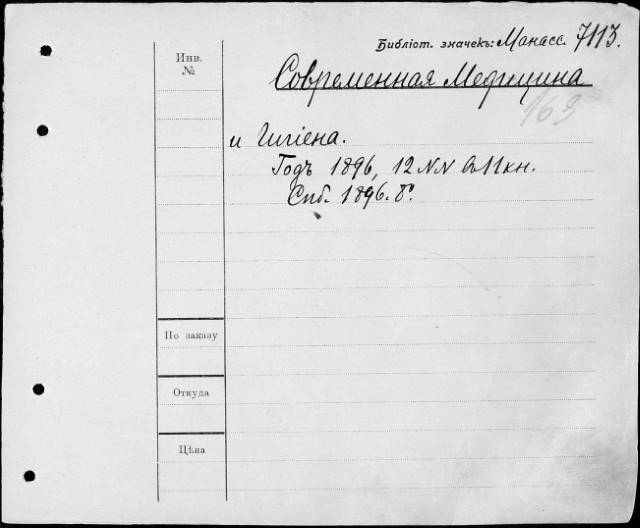 Библіот. значекъ: Манасс. 7113.
Инв.
№
Современная Медицина
163
и Гигіена.
Годъ 1896, 12 NN въ 11 кн.
Спб. 1896. 8°.
По заказу
Откуда
Цѣна